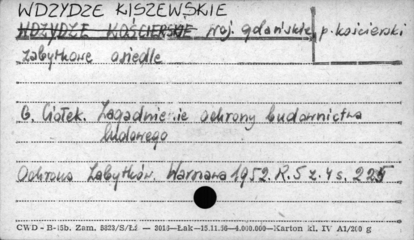 WDZYDZE KISZEWSKIE
WDZYDZE KOŚCIERSKIE woj. gdańskie, p. kościerski
zabytkowe osiedle
G. Ciołek. Zagadnienie ochrony budownictwa
ludowego
Ochrona Zabytków. Warszawa 1952. R. 5 z. 4 s. 225
CWD - B-15b. Zam. 5823/S/Łi — 3015—Łak—15.11.56—4.000.000—Karton kl. IV A1/200 g